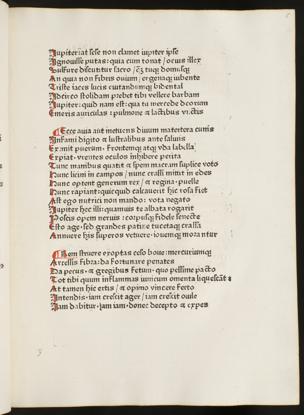 Iupiter? at sese non clamet iupiter ipse
Ignouisse putas: quia cum tonat / ocius ilex
Sulfure discutitur sacro /
An quia non fibris ouium / ergenaq iubente
Triste iaces lucis euitandumq bidental
Idcirco stolidam prebet tibi vellere barbam
Iupiter: quid nam est: qua tu mercede deorum
Emeris auriculas: pulmone & lactibus vnctis
Ecce auia aut metuens diuum matertera cunis
Exemit puerum: frontemq atq vda labella
Infami digito & lustralibus ante saliuis
Expiat: vrentes oculos inhibere perita
Tunc manibus quatit & spem macram supplice voto
Nunc licini in campos / nunc crassi mittit in edes
Hunc optent generum rex / & regina: puelle
Hunc rapiant: quicquid calcauerit hic rosa fiet
Ast ego nutrici non mando: vota negato
Iupiter hec illi: quamuis te albata rogarit
Poscis opem neruis: corpusq fidele senecte
Esto age: sed grandes patine tucetaq crassa
Annuere his superos vetuere: iouemq morantur
Rem struere exoptas ceso boue: mercuriumq
Arcessis fibra: da fortunare penates
Da pecus: & gregibus fetum: quo pessime pacto
Tot tibi quum in flammas iunicum omenta liquescant
At tamen hic extis / & opimo vincere ferto
Intendit: iam crescit ager / iam crescit ouile
Iam dabitur: iam iam: donec decepto & expes